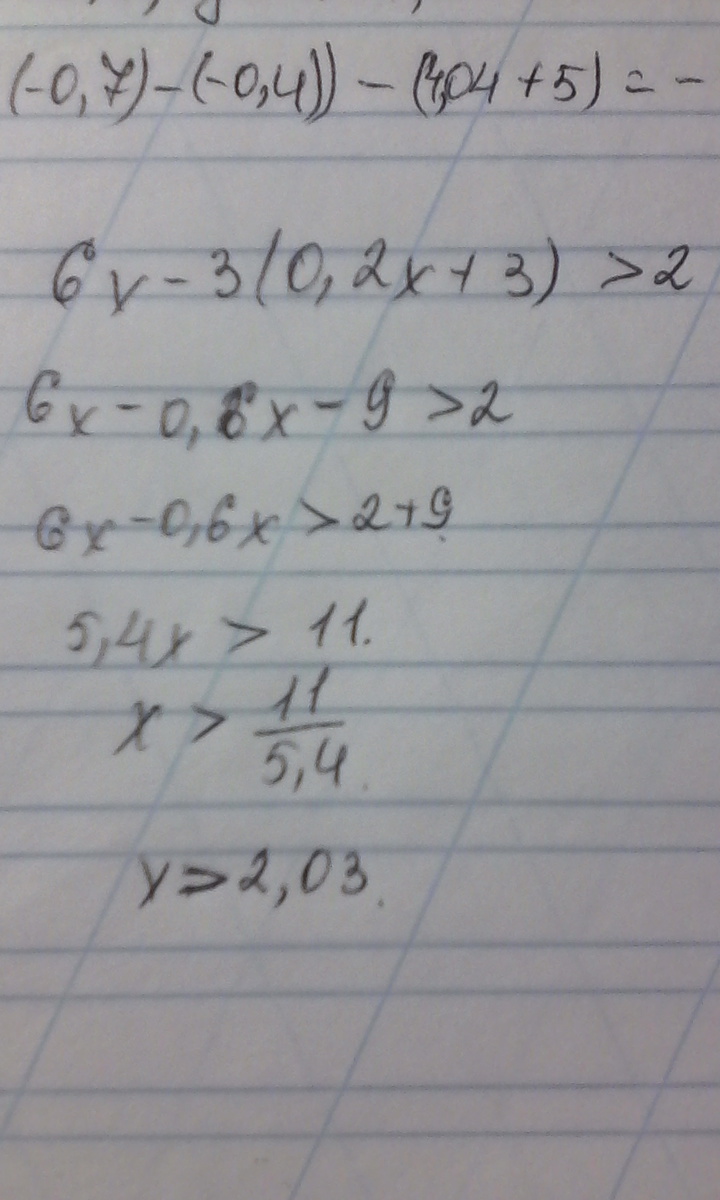 (-0,7)-(-0,4)) - (4,04+5) = -
6x - 3(0,2x+3) >2
6x - 0,6x - 9 >2
6x - 0,6x > 2+9
5,4x > 11.
x > 11/5,4.
x > 2,03.